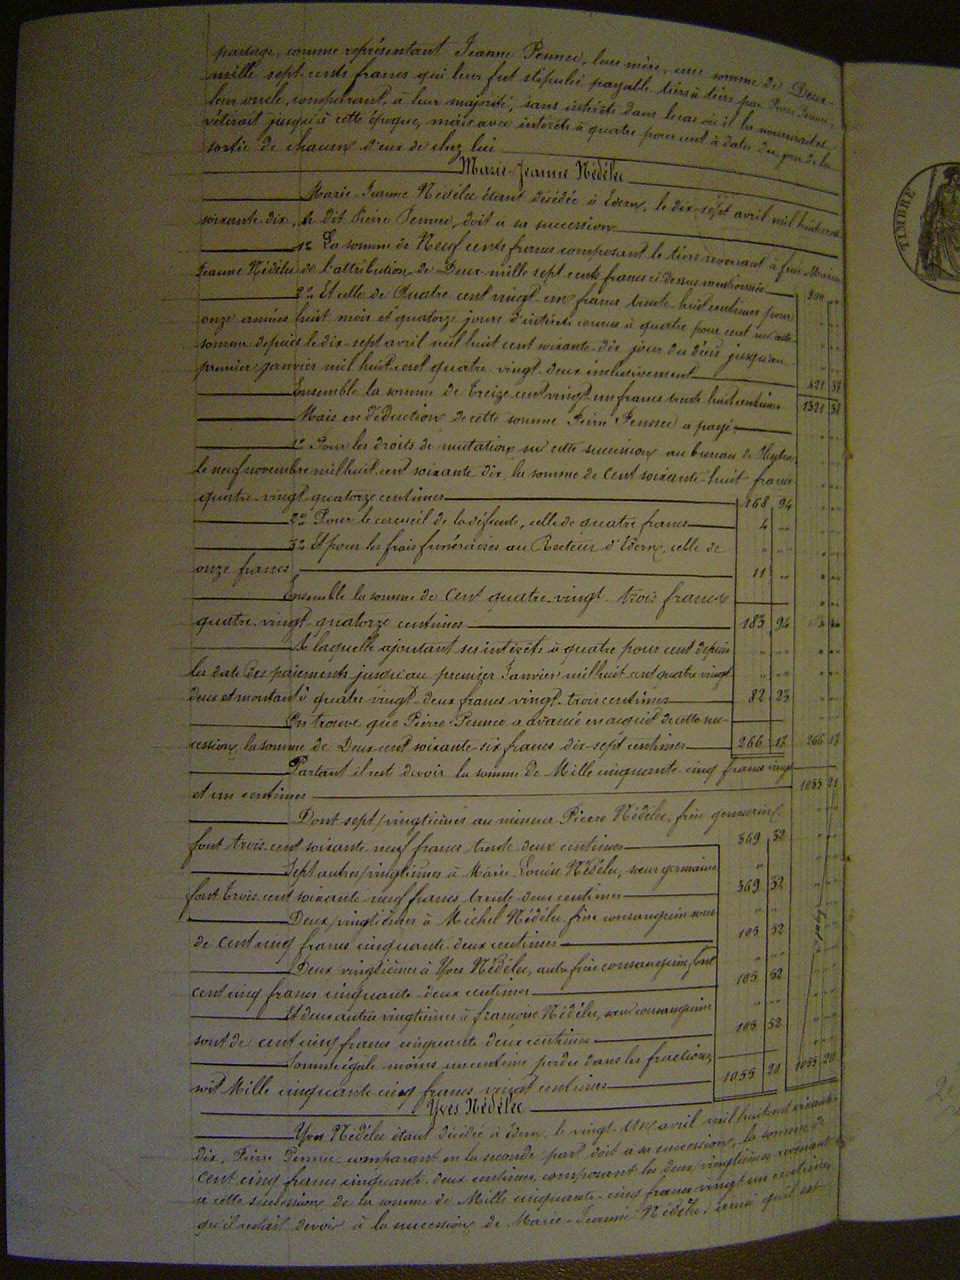 partage, comme représentant Jeanne Pennec, leur mère, une somme de Deux
mille sept cents francs qui leur fut stipulée payable tiers à tiers par Pierre Pennec,
leur oncle, comparant, à leur majorité, sans intérêts dans le cas où il les nourrirait et
vêtirait jusqu'à cette époque, mais avec intérêts à quatre pour cent à dater du jour de la
sortie de chacun d'eux de chez lui
Marie-Jeanne Nédélec
Marie-Jeanne Nédélec étant décédée à Edern, le dix-sept avril mil huit cent
soixante-dix, le dit Pierre Pennec, doit à sa succession
1º La somme de Neuf cents francs composant le tiers revenant à feue Marie
Jeanne Nédélec de l'attribution de Deux mille sept cents francs ci-dessus mentionnée 900 ,,
2º Et celle de Quatre cent vingt-un francs trente-huit centimes pour
onze années huit mois et quatorze jours d'intérêts courus à quatre pour cent sur cette
somme depuis le dix-sept avril mil huit cent soixante-dix, jour du décès jusqu'au
premier janvier mil huit cent quatre-vingt-deux inclusivement 421 38
Ensemble la somme de treize cent vingt-un francs trente-huit centimes 1321 38
Mais en déduction de cette somme Pierre Pennec a payé
1º Pour les droits de mutation sur cette succession au bureau de
le neuf novembre mil huit cent soixante-dix, la somme de cent soixante-huit francs
quatre-vingt-quatorze centimes 168 94
2º Pour le cercueil de la défunte, celle de quatre francs 4 ,,
3º Et pour les frais funéraires au Recteur d'Edern, celle de
onze francs 11 ,,
Ensemble la somme de cent quatre-vingt-trois francs
quatre-vingt-quatorze centimes 183 94
A laquelle ajoutant ses intérêts à quatre pour cent depuis
la date des paiements jusqu'au premier Janvier mil huit cent quatre vingt
deux et montant à quatre-vingt-deux francs vingt-trois centimes 82 23
On trouve que Pierre Pennec a avancé en acquit de cette suc-
cession, la somme de Deux cent soixante-six francs dix-sept centimes 266 17 266 17
Partant il reste devoir la somme de Mille cinquante-cinq francs vingt
et un centimes 1055 21
Dont sept/vingtièmes au mineur Pierre Nédélec, frère germain
font trois cent soixante-neuf francs trente-deux centimes 369 32
Sept autres/vingtièmes à Marie-Louise Nédélec, sœur germaine
font Trois cent soixante-neuf francs trente-deux centimes 369 32
Deux/vingtièmes à Michel Nédélec, frère consanguin sont
de cent cinq francs cinquante-deux centimes 105 52
Deux vingtièmes à Yves Nédélec, autre frère consanguin, font
cent cinq francs cinquante-deux centimes 105 52
Et deux autres vingtièmes à Françoise Nédélec, sœur consanguine
sont de cent cinq francs cinquante deux centimes 105 52
Somme égale moins un centime perdu dans les fractions,
soit Mille cinquante cinq francs vingt centimes 1055 20 1055 20
Yves Nédélec
Yves Nédélec étant décédé à Edern, le vingt-un avril mil huit cent soixante-
dix, Pierre Pennec comparant en la seconde part doit à sa succession, la somme de
cent cinq francs cinquante-deux centimes, composant les deux vingtièmes revenant
à cette succession de la somme de Mille cinquante-cinq francs vingt un centimes
qu'il restait devoir à la succession de Marie-Jeanne Nédélec, ainsi qu'il est
TIMBRE